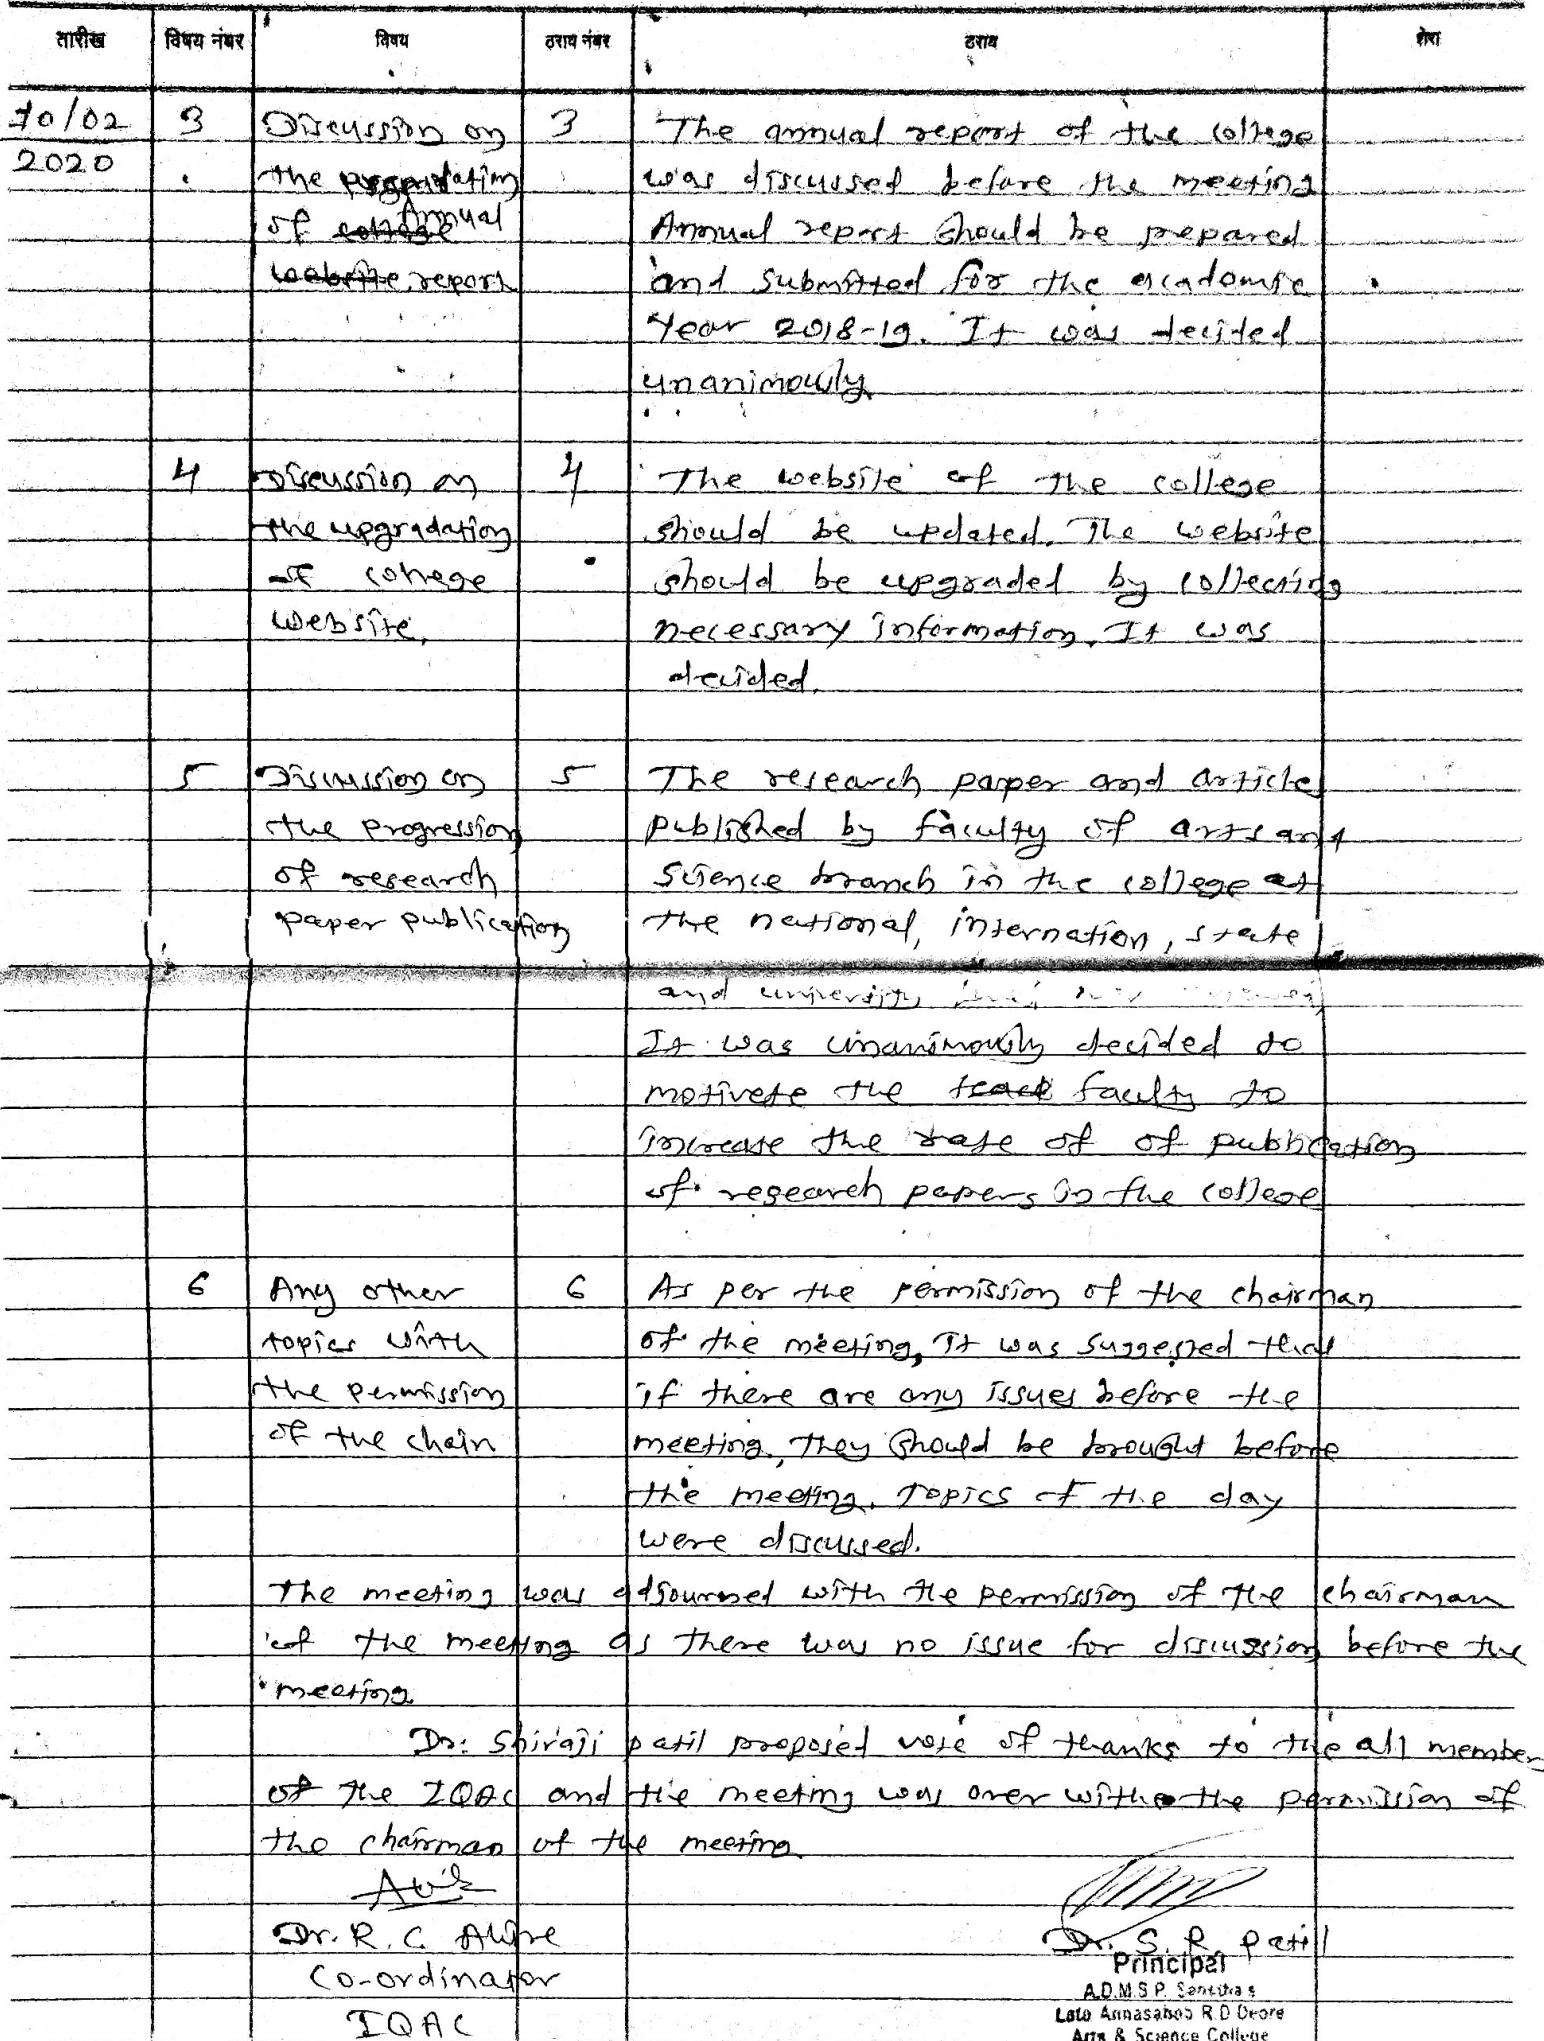 तारीख विषय नंबर विषय ठराव नंबर ठराव शेरा
10/02
2020
3
Discussion on
the preparation
of college Annual
website report
3
The annual report of the college
was discussed before the meeting
Annual report should be prepared
and submitted for the academic
Year 2018-19. It was decided
unanimously.
4
Discussion on
the upgradation
of college
website,
4
The website of the college
should be updated. The website
should be upgraded by collecting
necessary information. It was
decided.
5
Discussion on
the progression
of research
paper publication
5
The research paper and article
published by faculty of arts and
Science branch in the college at
the national, internation, state
and university
It was unanimously decided to
motivete the teach faculty to
increase the rate of of publication
of research papers in the college
6
Any other
topics with
the permission
of the chain
6
As per the permission of the chairman
of the meeting, It was suggested that
if there are any issues before the
meeting, they should be brought before
the meeting. Topics of the day
were discussed.
The meeting was adjourned with the permission of the chairman
of the meeting as there was no issue for discussion before the
meeting.
Dr. Shivaji patil proposed vote of thanks to the all member
of the IQAC and the meeting was over with the permission of
the chairman of the meeting.
Dr. R. C. Ahire
Co-ordinator
IQAC
Dr. S. R. Patil
Principal
A.D.M.S.P. Sanstha's
Late Annasaheb R.D Deore
Arts & Science College